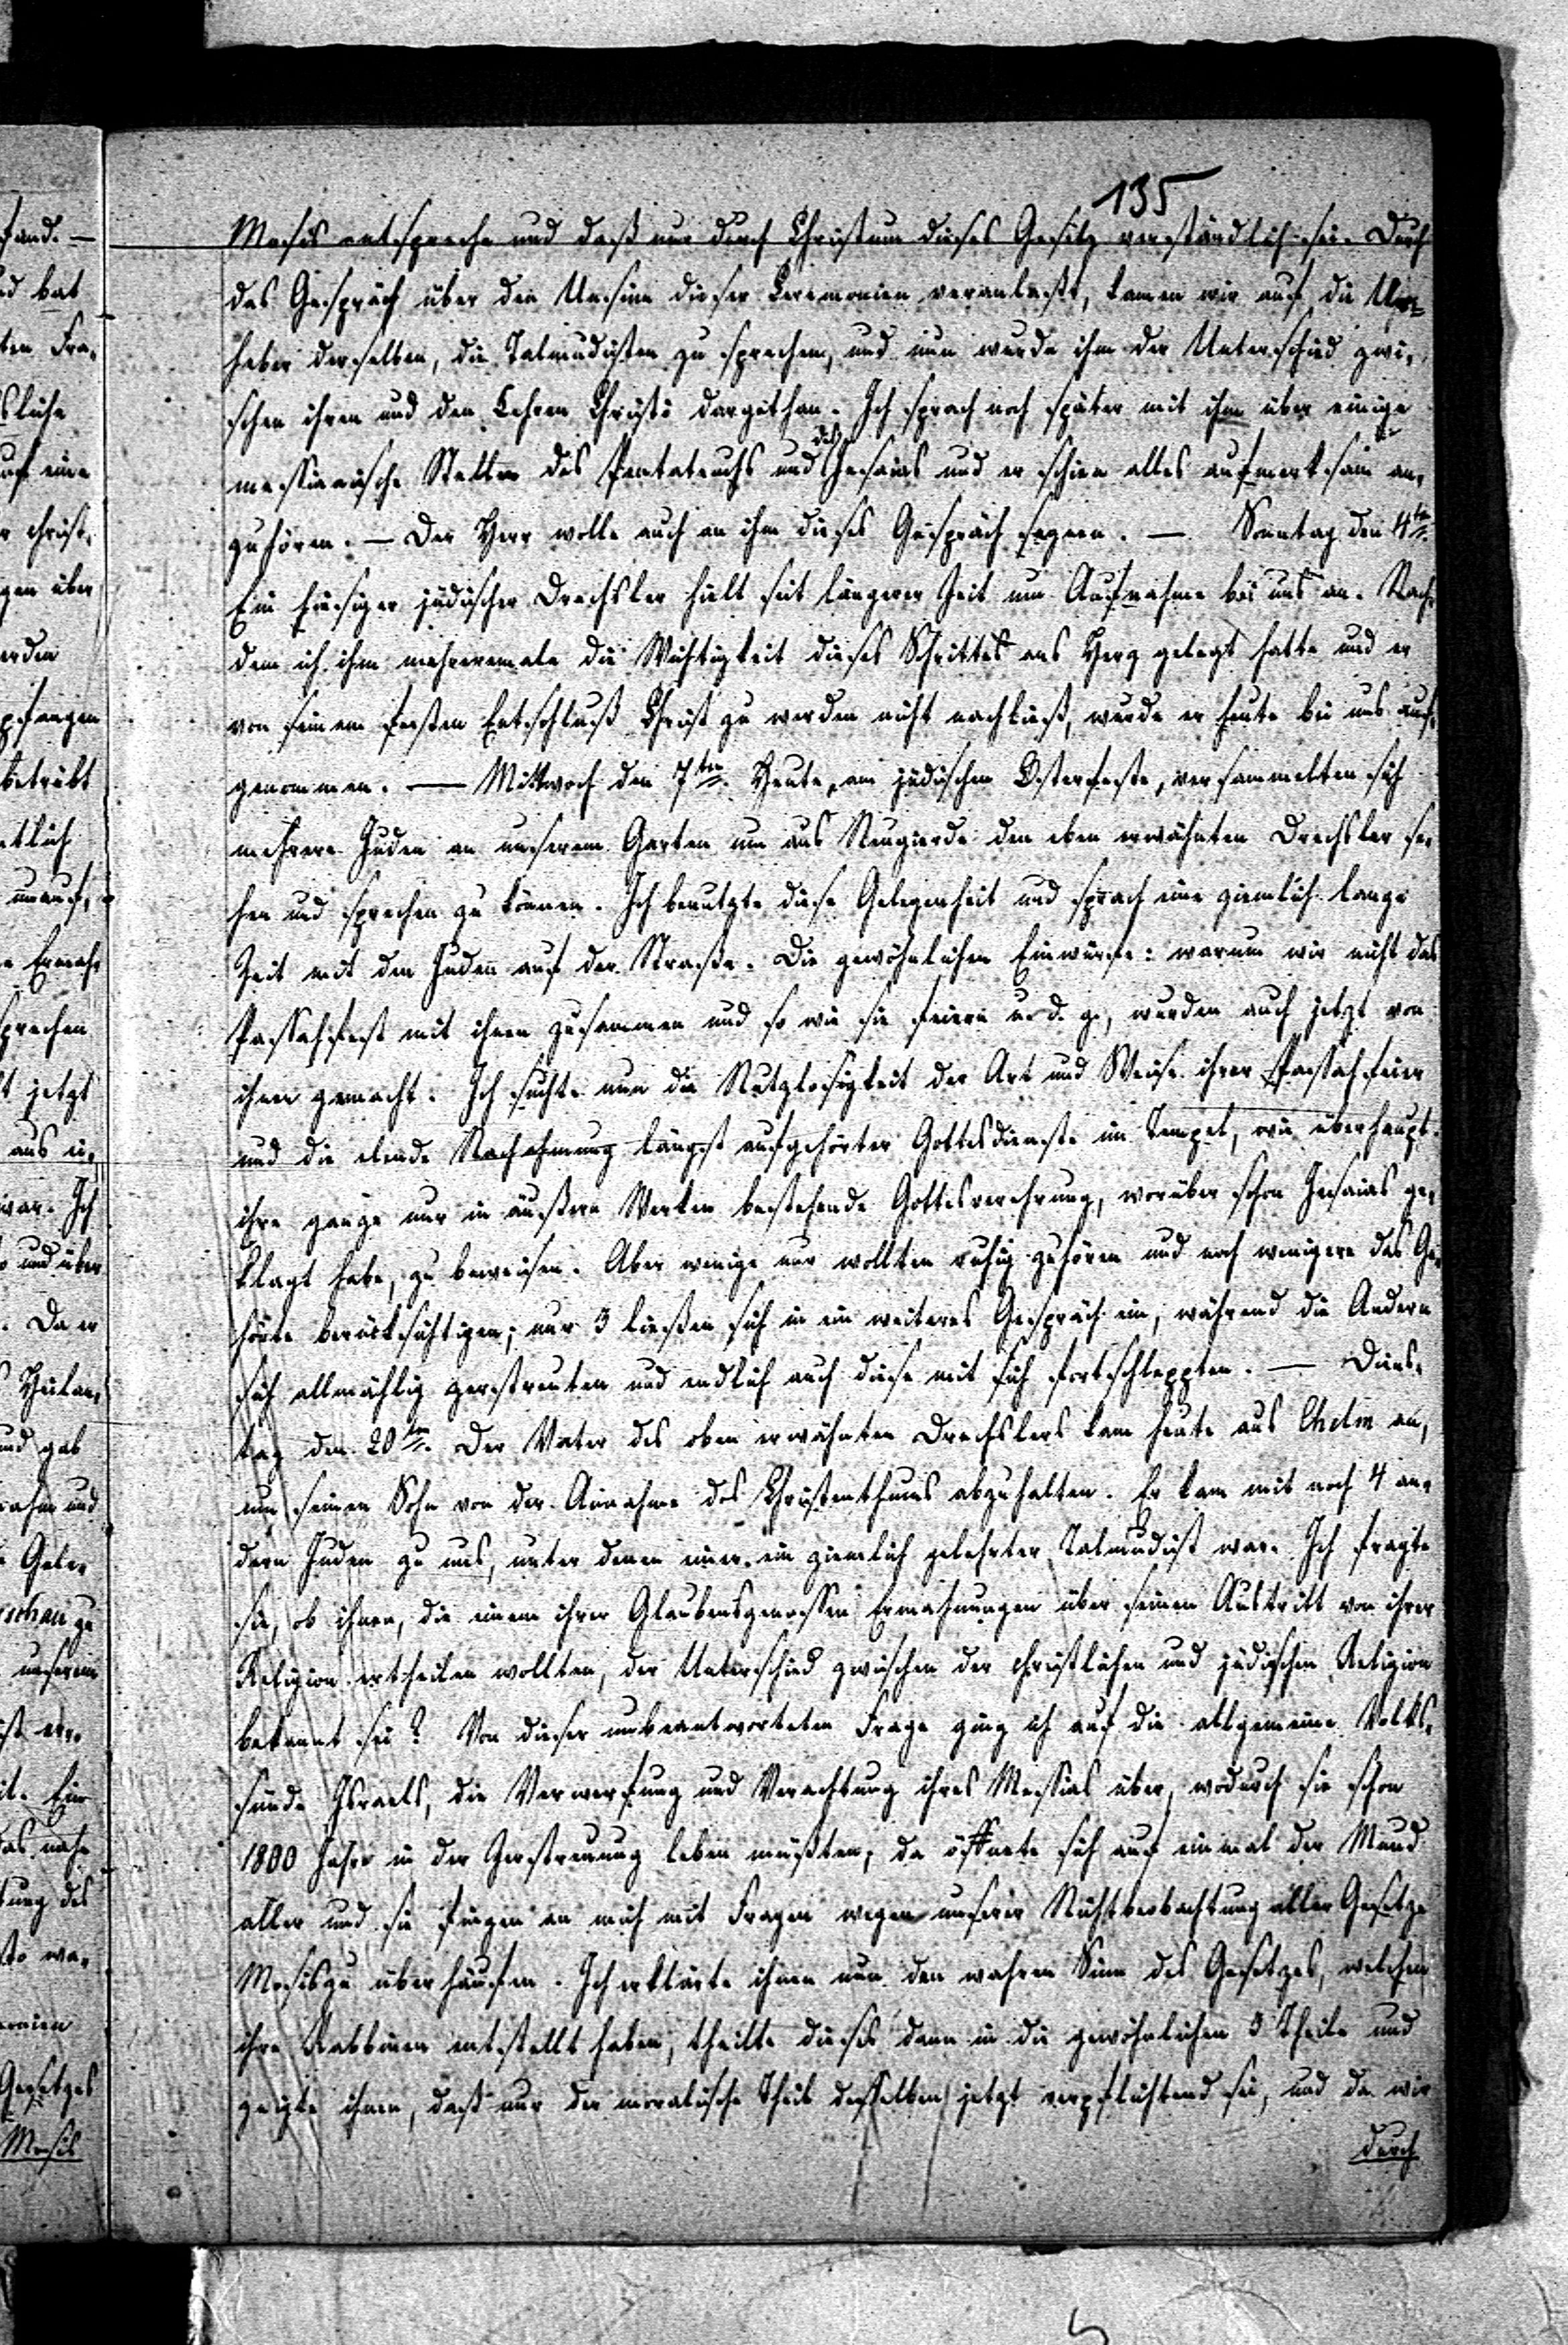 135
Mosis entspreche und daß nur durch Christum dieses Gesetz verständlich sei. Durch
das Gespräch über den Unsinn dieser Ceremonien veranlaßt, kamen wir auf die Ur-
heber derselben, die Talmudisten zu sprechen, und nun wurde ihm der Unterschied zwi-
schen ihren und den Lehren Christi dargethan. Ich sprach noch später mit ihm über einige
messianische Stellen des Pentateuchs und des Jesaias und er schien alles aufmerksam an-
zuhören. — Der Herr wolle auch an ihm dieses Gespräch segnen. — Sonntag den 4ten
Ein hiesiger jüdischer Drechsler hielt seit längerer Zeit um Aufnahme bei uns an. Nach-
dem ich ihm mehreremale die Wichtigkeit dieses Schrittes ans Herz gelegt hatte und er
von seinem festen Entschluß Christ zu werden nicht nachließ, wurde er heute bei uns auf-
genommen. — Mittwoch den 7ten Heute, am jüdischen Osterfeste, versammelten sich
mehrere Juden an unserem Garten um aus Neugierde den eben erwähnten Drechsler se-
hen und sprechen zu können. Ich benutzte diese Gelegenheit und sprach eine ziemlich lange
Zeit mit den Juden auf der Straße. Die gewöhnlichen Einwürfe: warum wir nicht das
Passahfest mit ihnen zusammen und so wie sie feiern u. d. g., wurden auch jetzt von
ihnen gemacht. Ich suchte nun die Nutzlosigkeit der Art und Weise ihrer Passahfeier
und die elende Nachahmung längst aufgehörter Gottesdienste im Tempel, wie überhaupt
ihre ganze nur in äußern Werken bestehende Gottesverehrung, worüber schon Jesaias ge-
klagt habe, zu beweisen. Aber wenige nur wollten ruhig zuhören und noch wenigere das Ge-
hörte berücksichtigen; nur 3 ließen sich in ein weiteres Gespräch ein, während die Andern
sich allmählig zerstreuten und endlich auch diese mit sich fortschleppten. — Diens-
tag den 20ten Der Vater des oben erwähnten Drechslers kam heute aus Chelm an,
um seinen Sohn von der Annahme des Christenthums abzuhalten. Er kam mit noch 4 an-
dern Juden zu uns, unter denen einer ein ziemlich gelehrter Talmudist war. Ich fragte
sie, ob ihnen, die einem ihrer Glaubensgenossen Ermahnungen über seinen Austritt von ihrer
Religion ertheilen wollten, der Unterschied zwischen der christlichen und jüdischen Religion
bekannt sei? Von dieser unbeantworteten Frage ging ich auf die allgemeine Volks-
sünde Israels, die Verwerfung und Verachtung ihres Messias über, wodurch sie schon
1800 Jahre in der Zerstreuung leben müßten; da öffnete sich auf einmal der Mund
aller und sie fingen an mich mit Fragen wegen unserer Nichtbeobachtung aller Gesetze
Mosis zu überhäufen. Ich erklärte ihnen nun den wahren Sinn des Gesetzes, welchen
ihre Rabbinen entstellt haben, theilte dieses dann in die gewöhnlichen 3 Theile und
zeigte ihnen, daß nur der moralische Theil desselben jetzt verpflichtend sei, und da wir
durch